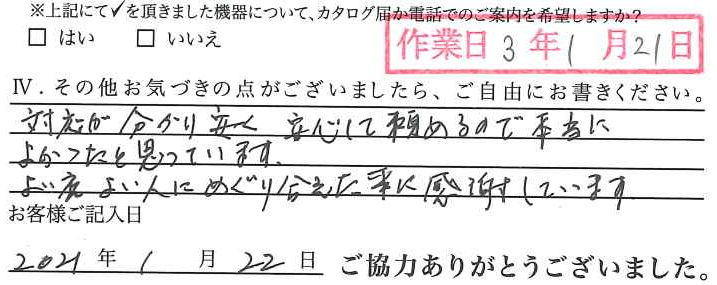 ※上記にて✓を頂きました機器について、カタログ届か電話でのご案内を希望しますか?
□ はい □ いいえ
作業日 3 年 1 月 21 日
Ⅳ.その他お気づきの点がございましたら、ご自由にお書きください。
対応が 分かり安く 安心して頼めるので本当に
よかったと思っています。
よい店 よい人にめぐり合えた事に感謝しています
お客様ご記入日
2021 年 1 月 22 日 ご協力ありがとうございました。